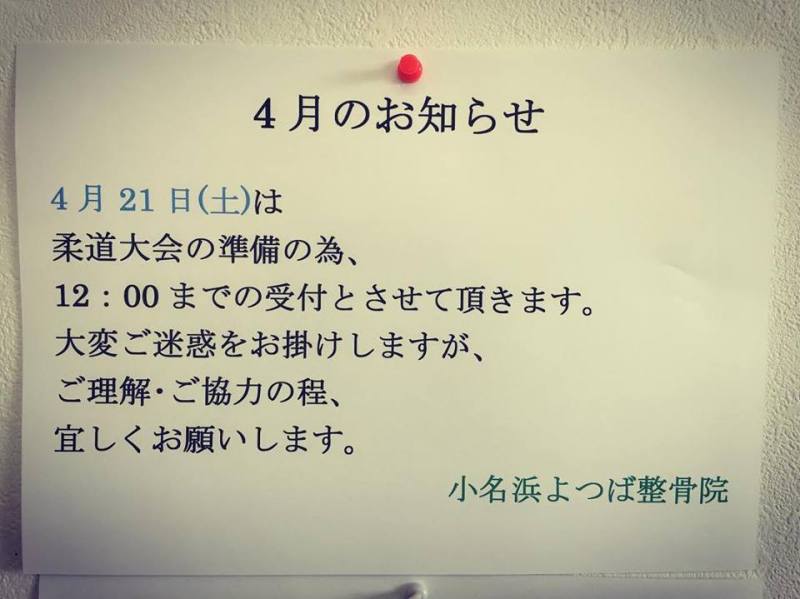 4月のお知らせ
4月21日(土)は
柔道大会の準備の為、
12：00までの受付とさせて頂きます。
大変ご迷惑をお掛けしますが、
ご理解・ご協力の程、
宜しくお願いします。
小名浜よつば整骨院